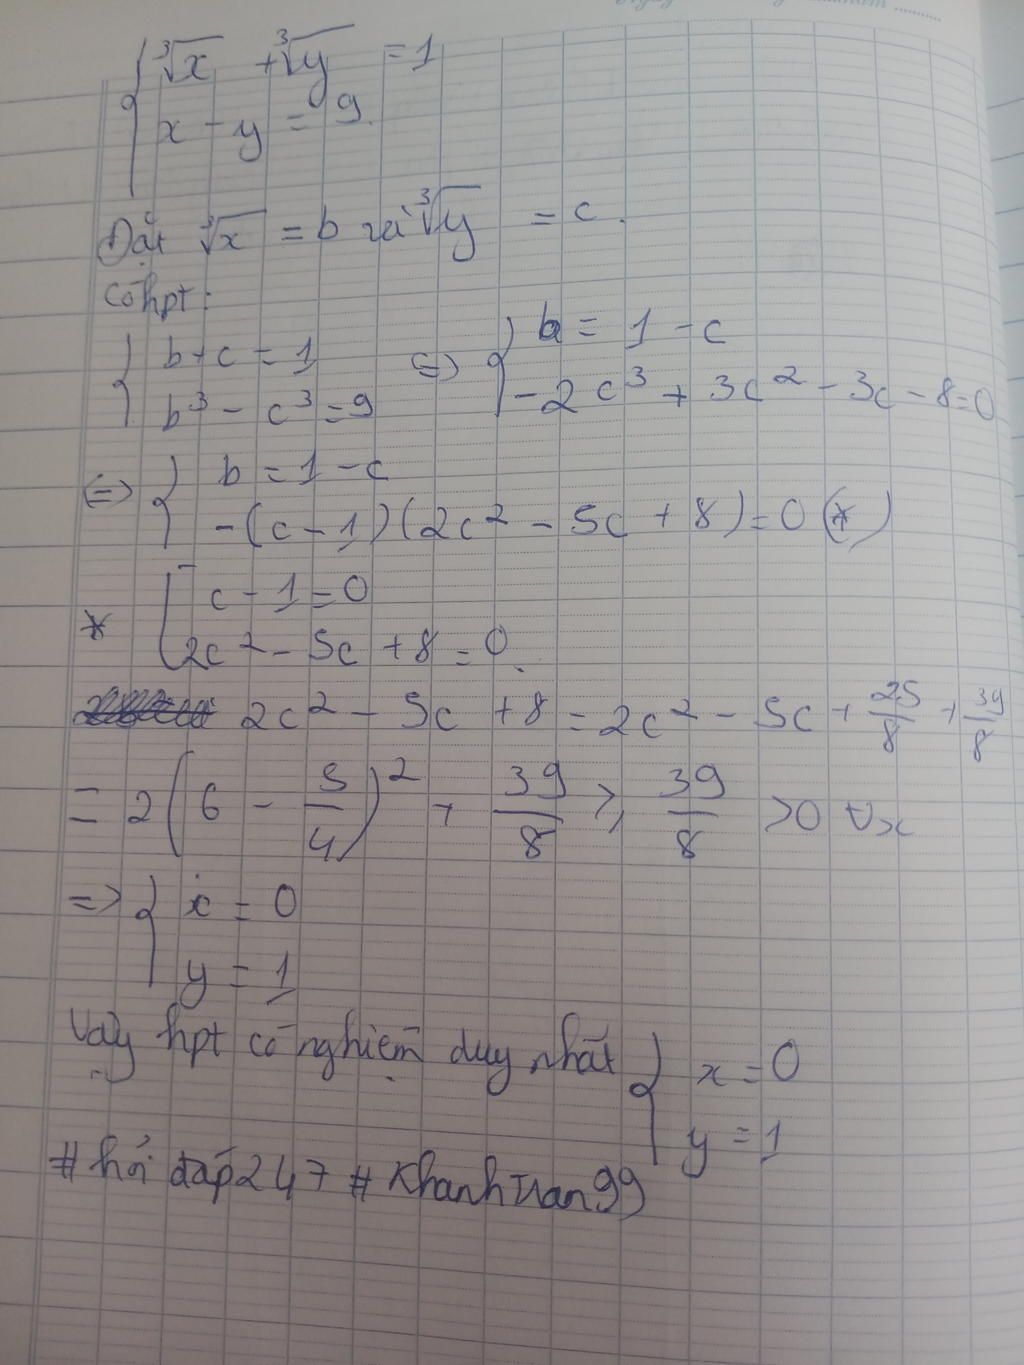 ∛x + ∛y = 1
x - y = 9.
Đặt ∛x = b và ∛y = c.
có hpt:
b+c = 1 <=> b = 1 - c
b³ - c³ = 9 -2c³ + 3c² - 3c - 8 = 0
<=> b = 1 - c
-(c - 1)(2c² - 5c + 8) = 0 (*)
* c - 1 = 0
2c² - 5c + 8 = 0.
2c² - 5c + 8 = 2c² - 5c + 25/8 + 39/8
= 2(6 - 5/4)² + 39/8 ≥ 39/8 > 0 ∀x
=> x = 0
y = 1
Vậy hpt có nghiệm duy nhất x = 0
y = 1
# hỏi đáp247 # KhanhTran99